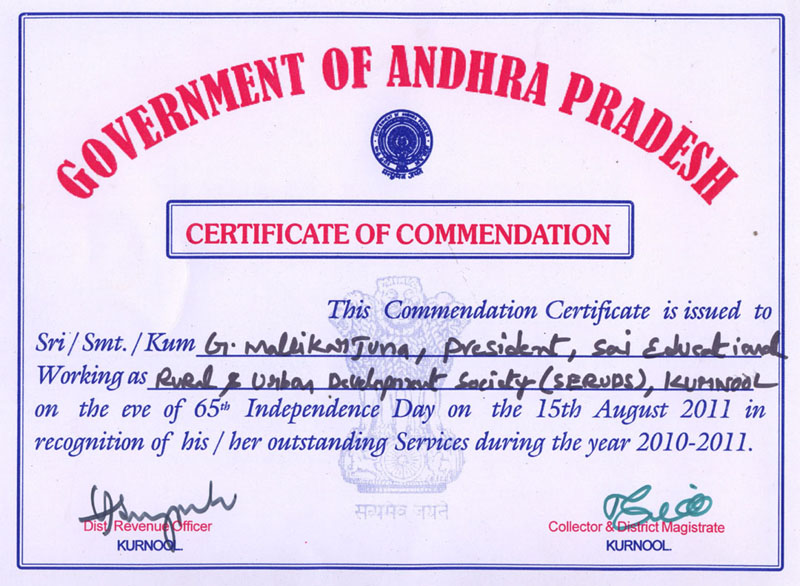 GOVERNMENT OF ANDHRA PRADESH
CERTIFICATE OF COMMENDATION
This Commendation Certificate is issued to
Sri / Smt. / Kum G. Mallikarjuna, president, sai Educational
Working as Rural & Urban Development Society (SERUDS), KURNOOL
on the eve of 65th Independence Day on the 15th August 2011 in
recognition of his / her outstanding Services during the year 2010-2011.
सत्यमेव जयते
Dist. Revenue Officer
KURNOOL.
Collector & District Magistrate
KURNOOL.